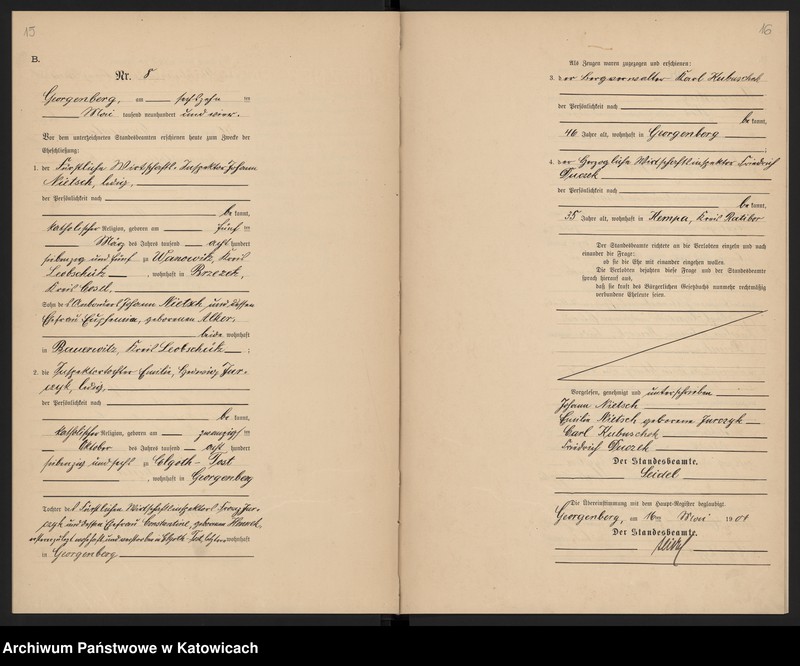 15
B.
Nr. 8
Georgenberg, am sechszehn ten
Mai tausend neunhundert und vier.
Vor dem unterzeichneten Standesbeamten erschienen heute zum Zwecke der
Eheschließung:
1. der Fürstliche Wirtschafts-Inspektor Johann
Nietsch, ledig,
der Persönlichkeit nach
be kannt,
katholischer Religion, geboren am fünf ten
März des Jahres tausend acht hundert
siebenzig und fünf zu Wanowitz, Kreis
Leobschütz, wohnhaft in Brzezek,
Kreis Cosel,
Sohn des Johann Nietsch und dessen
Ehefrau geborenen
beide wohnhaft
in Bauerwitz, Kreis Leobschütz ;
2. die Inspektortochter Emilie, Hedwig Jur-
czyk, ledig,
der Persönlichkeit nach
be kannt,
katholischer Religion, geboren am zwanzig ten
Oktober des Jahres tausend acht hundert
siebenzig und sechs zu Elgoth-Tost
, wohnhaft in Georgenberg
Tochter des Fürstlichen Wirtschaftsinspektors Franz Jur-
czyk und dessen Ehefrau Constantine, geborenen
wohnhaft
in Georgenberg
16
Als Zeugen waren zugezogen und erschienen:
3. der Bergverwalter Karl Kubuschok
der Persönlichkeit nach
be kannt,
46 Jahre alt, wohnhaft in Georgenberg
;
4. der Herzogliche Wirtschaftsinspektor Friedrich
Duczek
der Persönlichkeit nach
be kannt,
35 Jahre alt, wohnhaft in Kempa, Kreis Ratibor
Der Standesbeamte richtete an die Verlobten einzeln und nach
einander die Frage:
ob sie die Ehe mit einander eingehen wollen.
Die Verlobten bejahten diese Frage und der Standesbeamte
sprach hierauf aus,
daß sie kraft des Bürgerlichen Gesetzbuchs nunmehr rechtmäßig
verbundene Eheleute seien.
Vorgelesen, genehmigt und unterschrieben
Johann Nietsch
Emilie Nietsch geborene Jurczyk
Carl Kubuschok
Friedrich Duczek
Der Standesbeamte.
Seidel
Die Übereinstimmung mit dem Haupt-Register beglaubigt.
Georgenberg, am 16ten Mai 1904
Der Standesbeamte.
Seidel
Archiwum Państwowe w Katowicach